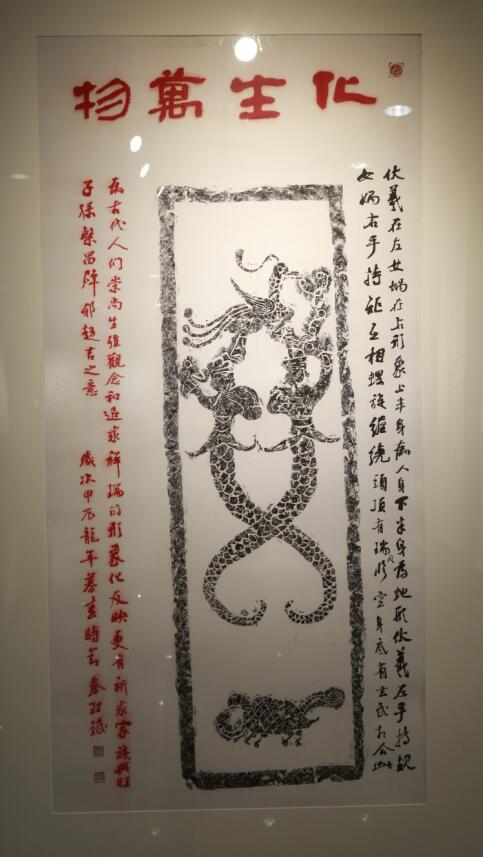 化生萬物
伏羲在左女媧在右形象上半身為人身下半身為地形伏羲左手持規
女媧右手持矩互相螺旋纏繞頭頂有瑞鳳騰空身底有玄武相合
為古代人们崇尚生殖觀念和追求祥瑞的形象化反映更有祈求家族興旺
子孫繁昌辟邪趋吉之意 歲次甲辰龍年暮春時節 秦